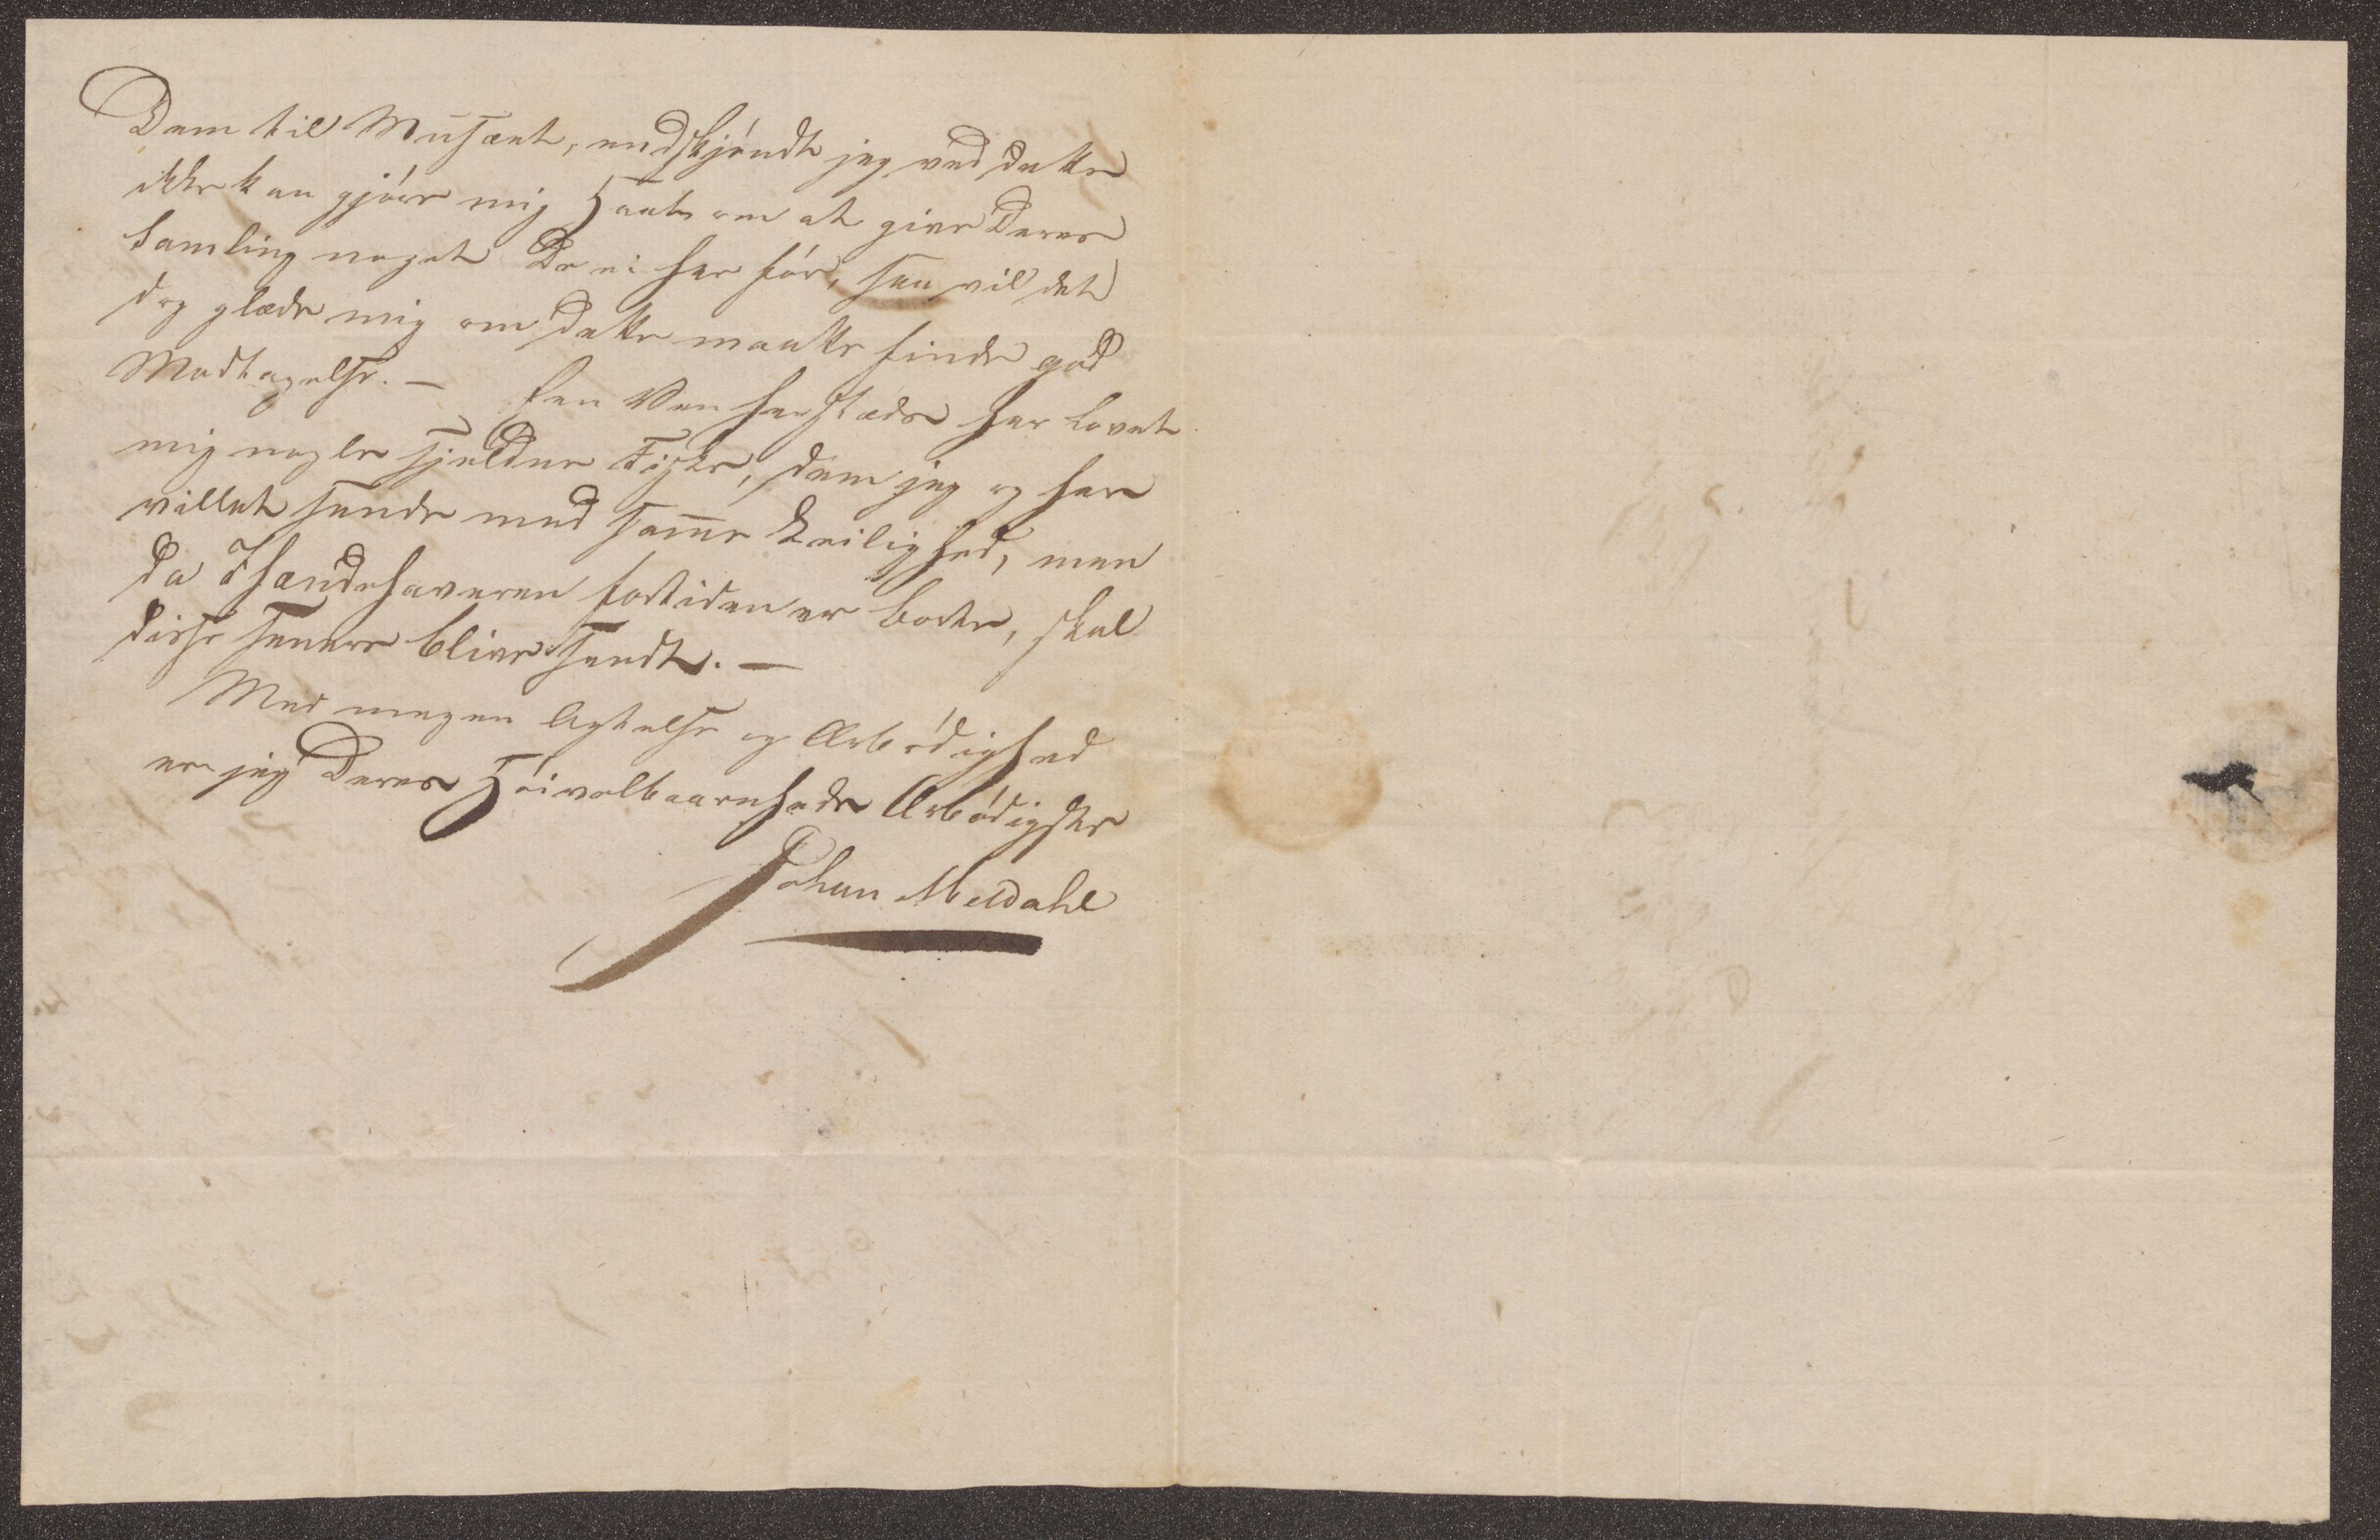 Dem til Musæet, endskjöndt jeg ved dette
ikke kan gjöre mig Haab om at give Deres
Samling noget De ei har för, saa vil det
dog glæde mig om dette maatte finde god
Modtagelse. — Een Ven herstæds har lovet
mig nogle sjeldne Fiske, dem jeg og har
villet sende med sam̅e Leilighed, men
da Ihændehaveren fortiden er borte, skal
disse senere blive sendt. —
Med megen Agtelse og Ærbödighed
er jeg Deres Höivelbaarenheds Ærbödigste
Johan Meldahl